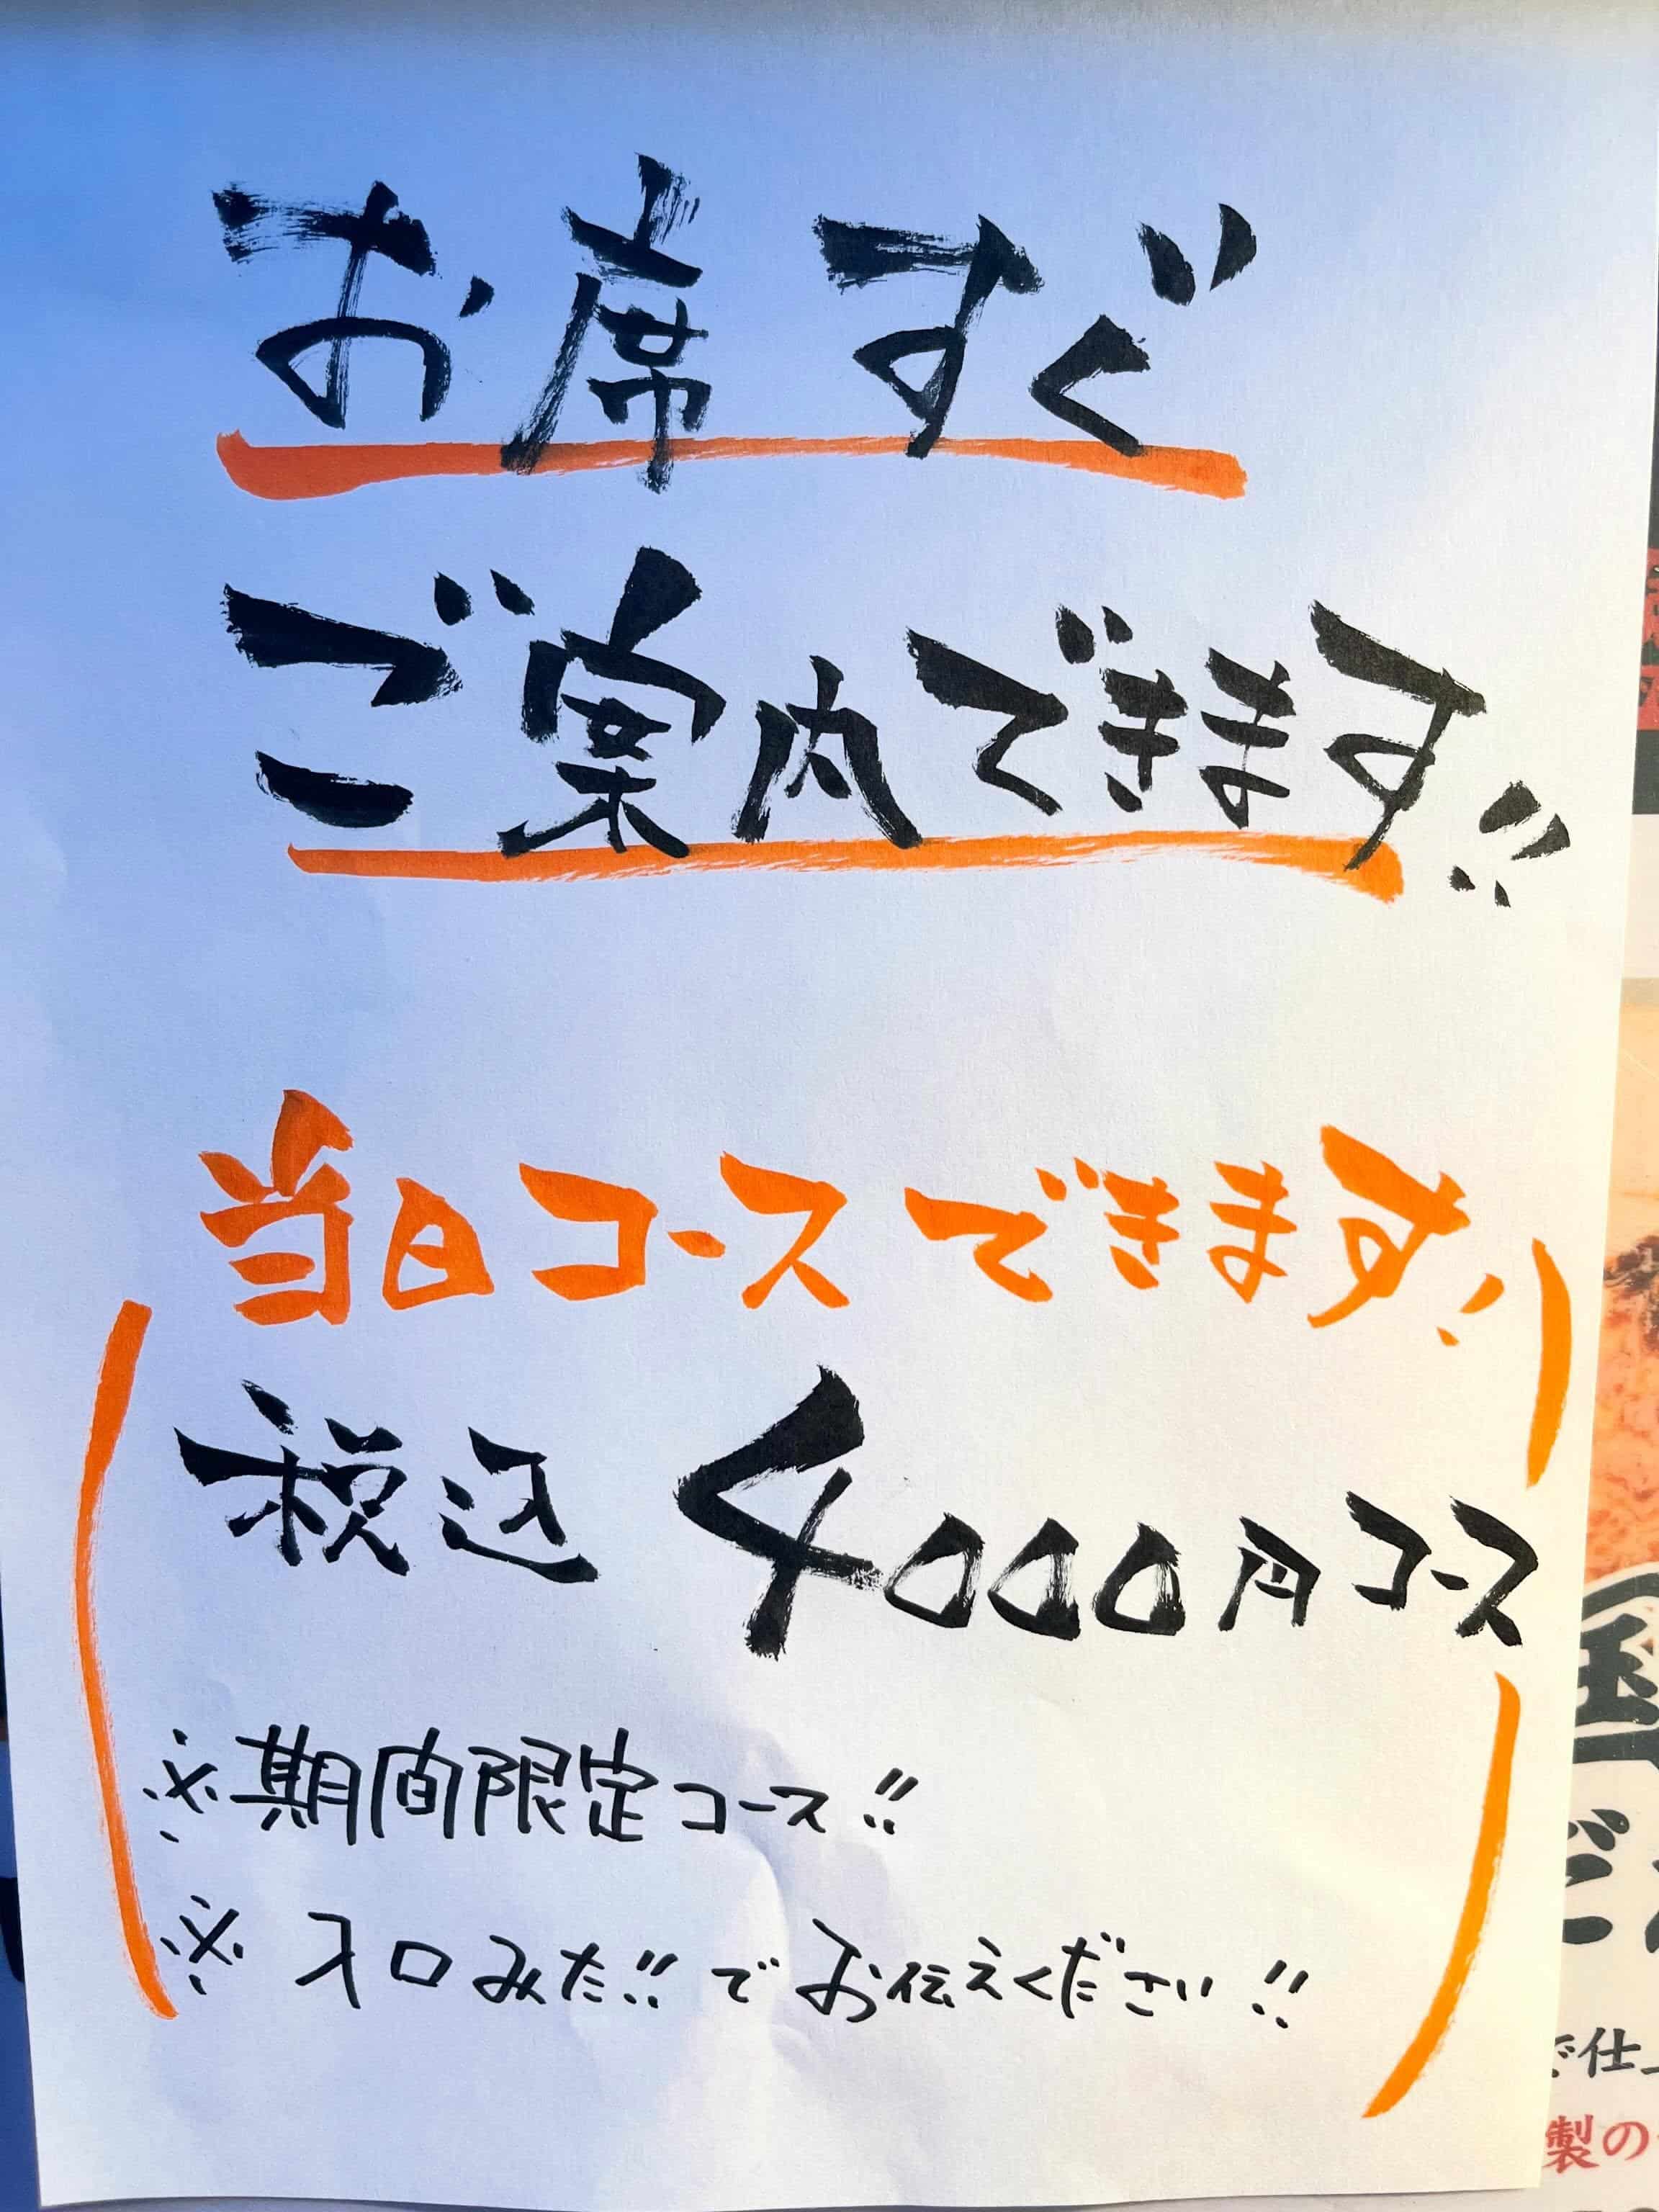 お席すぐ
ご案内できます!!
当日コースできます!
税込 4000円コース
※期間限定コース!!
※入口みた!!でお伝えください!!
で仕
製の